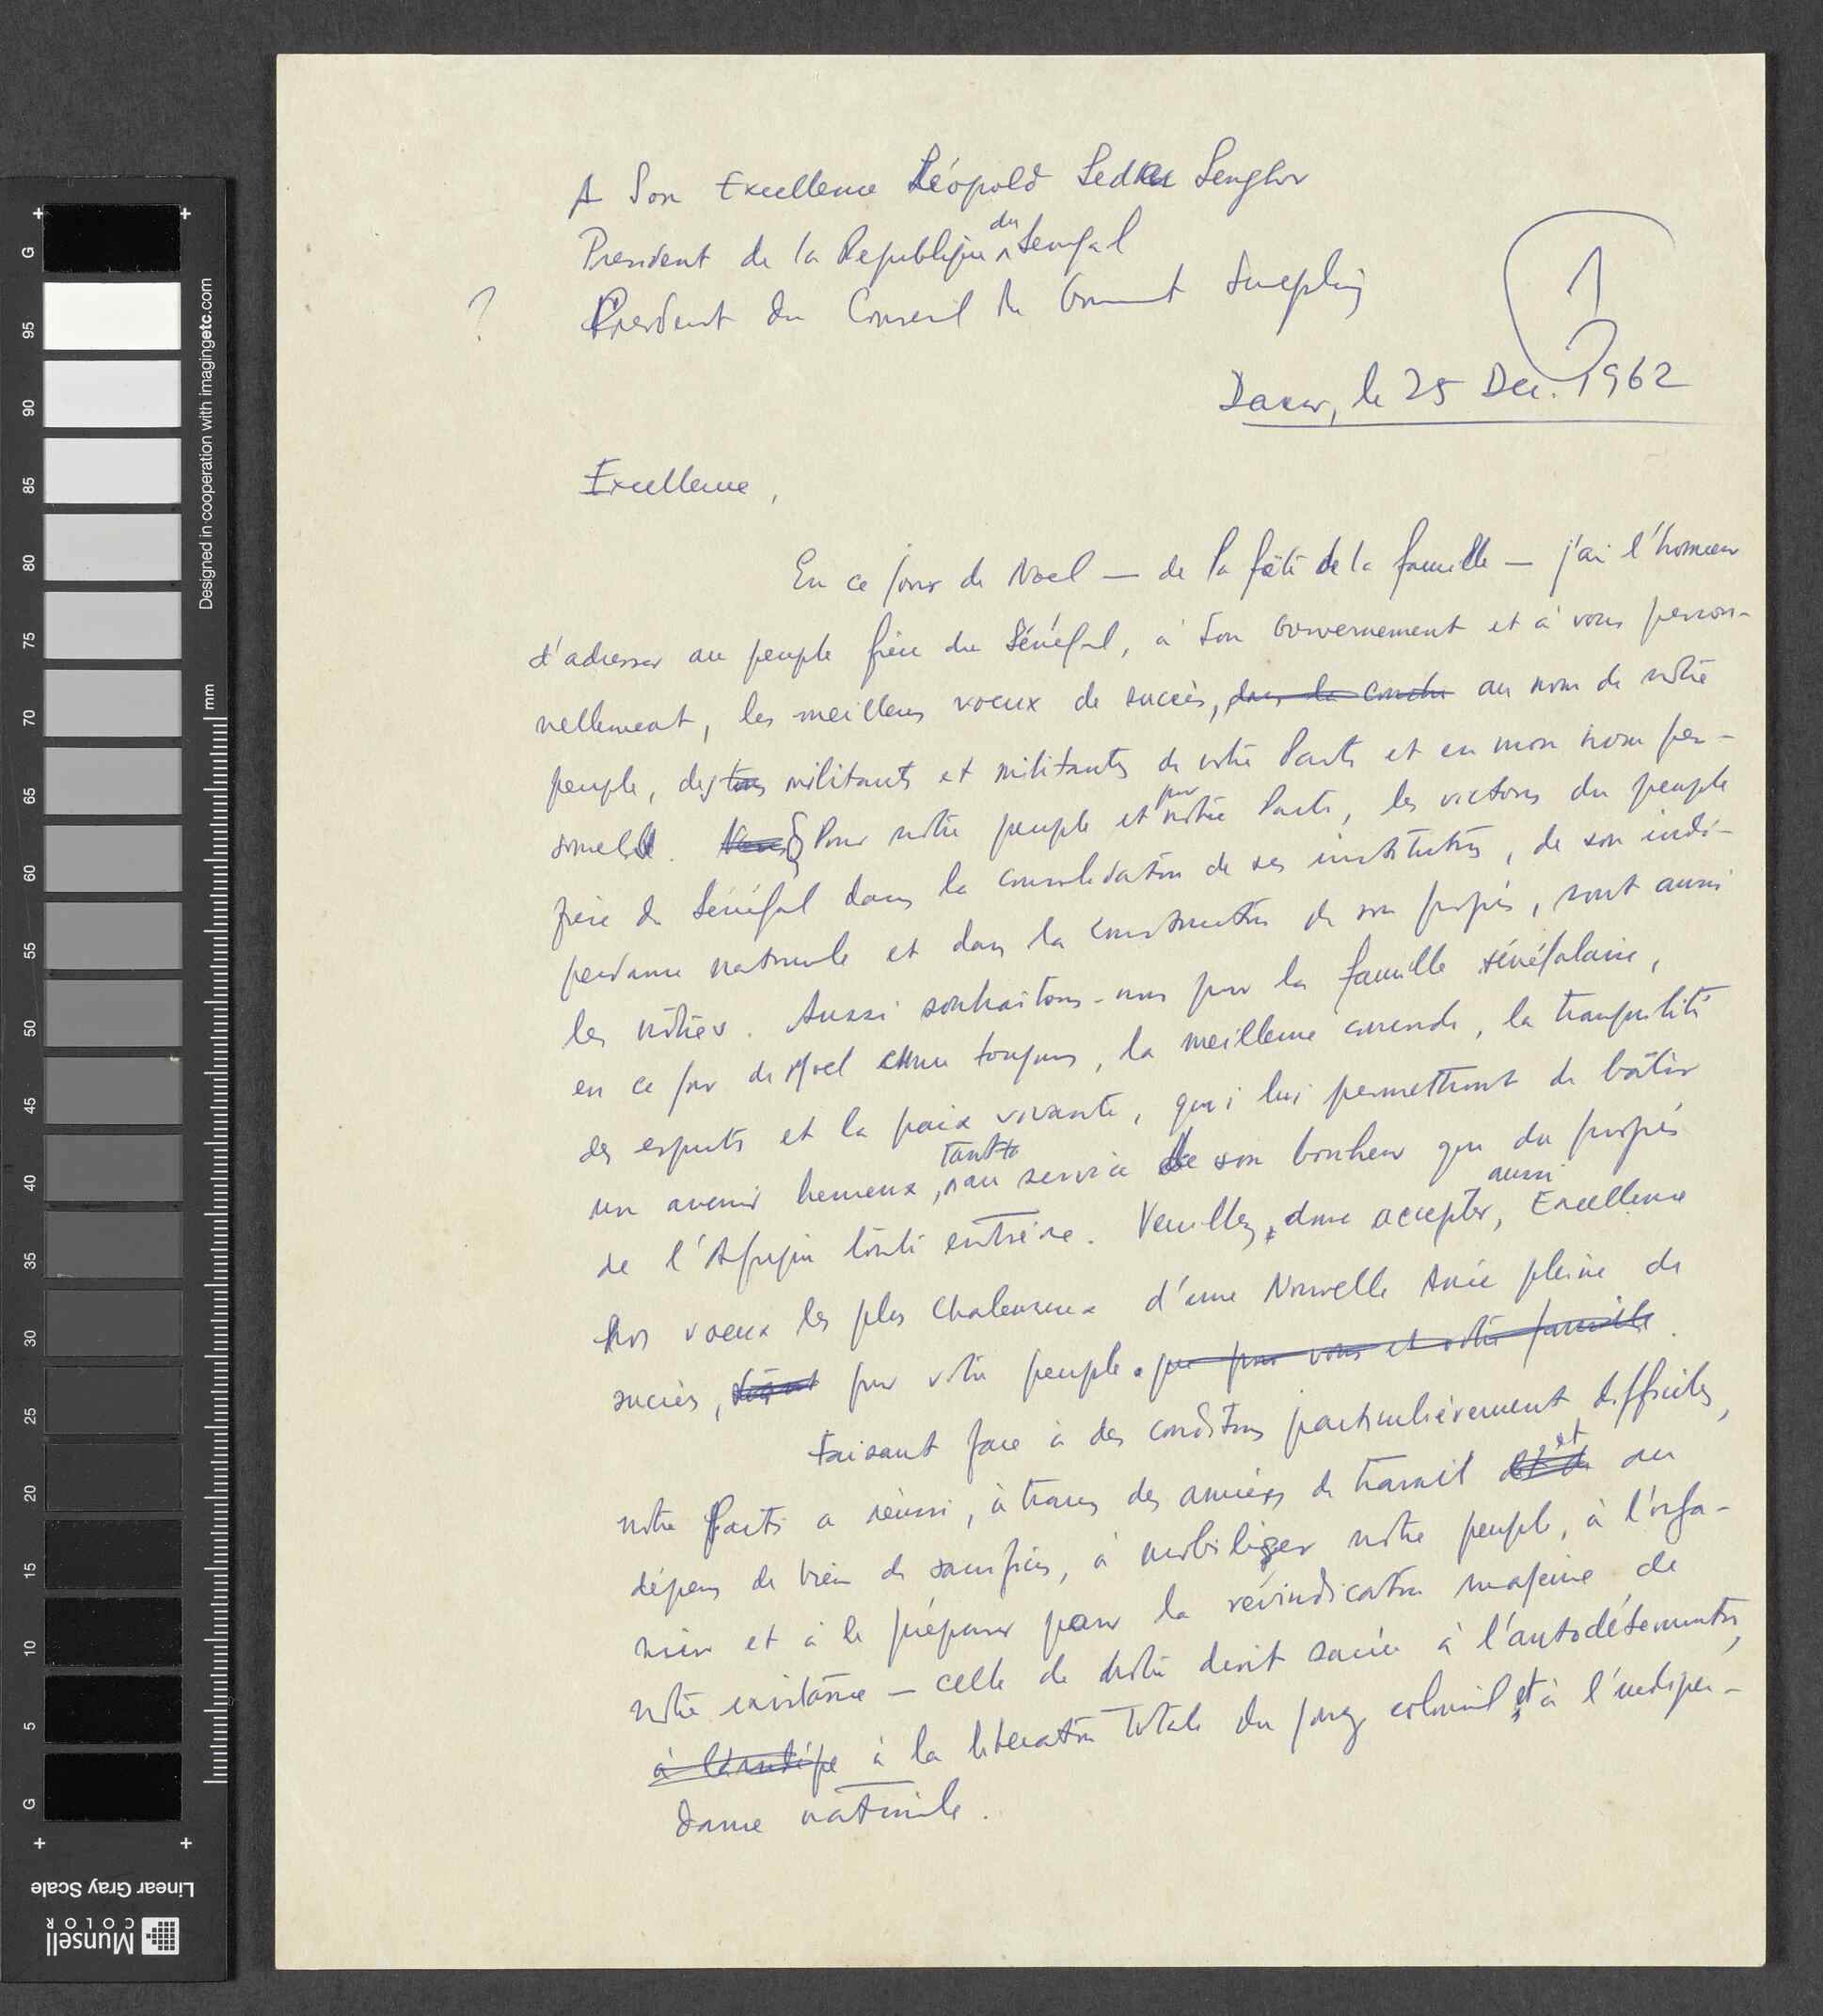 A Son Excellence Léopold Sedar Senghor
President de la Republique du Senegal
? President du Conseil du Gouvernement Senegalais
1
Dakar, le 25 Dec. 1962
Excellence,
En ce jour de Noel — de la fête de la famille — j'ai l'honneur
d'adresser au peuple frère du Sénégal, à son Gouvernement et à vous person-
nellement, les meilleurs voeux de succès, dans la conduite au nom de notre
peuple, des tous militants et militantes de notre Parti et en mon nom per-
sonnel. Pour notre peuple et pour notre Parti, les victoires du peuple
frère du Sénégal dans la consolidation de ses institutions, de son indé-
pendance nationale et dans la construction de son progrès, sont aussi
les nôtres. Aussi souhaitons-nous pour la famille sénégalaise,
en ce jour de Noel comme toujours, la meilleure concorde, la tranquilité
des esprits et la paix vivante, qui lui permettront de bâtir
un avenir heureux, tant au service de son bonheur que du progrès
de l'Afrique toute entière. Veuillez donc accepter, aussi Excellence
nos voeux les plus chaleureux d'une Nouvelle Anée pleine de
succès, tant pour votre peuple que pour vous et votre famille.
Faisant face à des conditions particulièrement difficiles,
notre Parti a réussi, à travers des années de travail et au
dépens de bien de sacrifices, à mobiliser notre peuple, à l'orga-
niser et à le préparer pour la révindication majeure de
notre existence — celle de notre droit sacré à l'autodétermination,
à l'indépe à la liberation totale du joug colonial et à l'indépen-
dance nationale.
G
95
90
85
80
75
70
65
60
55
50
45
40
35
30
25
20
15
10
5
G
mm
Designed in cooperation with imagingetc.com
Linear Gray Scale
Munsell
COLOR